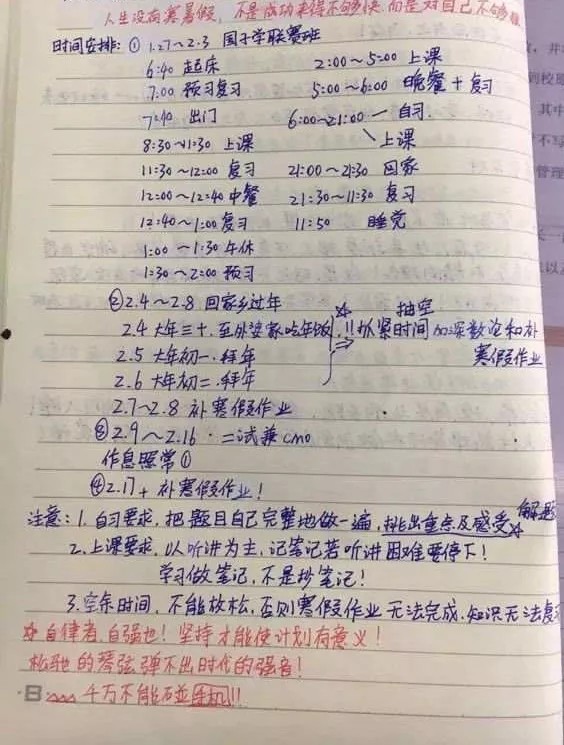 人生没有寒暑假，不是成功来得不够快，而是对自己不够狠
时间安排：① 1.27～2.3 国子学联赛班
6:40 起床 2:00～5:00 上课
7:00 预习复习 5:00～6:00 晚餐＋复习
7:40 出门 6:00～21:00 一 自习
8:30～11:30 上课 上课
11:30～12:00 复习 21:00～21:30 回家
12:00～12:40 中餐 21:30～11:30 复习
12:40～1:00 复习 11:50 睡觉
1:00～1:30 午休
1:30～2:00 预习
②2.4～2.8 回家乡过年 ☆ 抽空
2.4 大年三十，至外婆家吃年饭，!!抓紧时间加深数论和补
2.5 大年初一，拜年 寒假作业
2.6 大年初二，拜年
2.7～2.8 补寒假作业
③2.9～2.16 · 二试兼cmo
作息照常①
④2.17＋ 补寒假作业！
注意：1. 自习要求，把题目自己完整地做一遍，挑出重点及感受☆ 解题
2. 上课要求，以听讲为主，记笔记若听讲困难要停下！
学习做笔记，不是抄笔记！
3. 空余时间，不能放松，否则寒假作业无法完成，知识无法复
☆ 自律者，自强也！坚持才能使计划有意义！
松弛的琴弦弹不出时代的强音！
千万不能碰手机!!